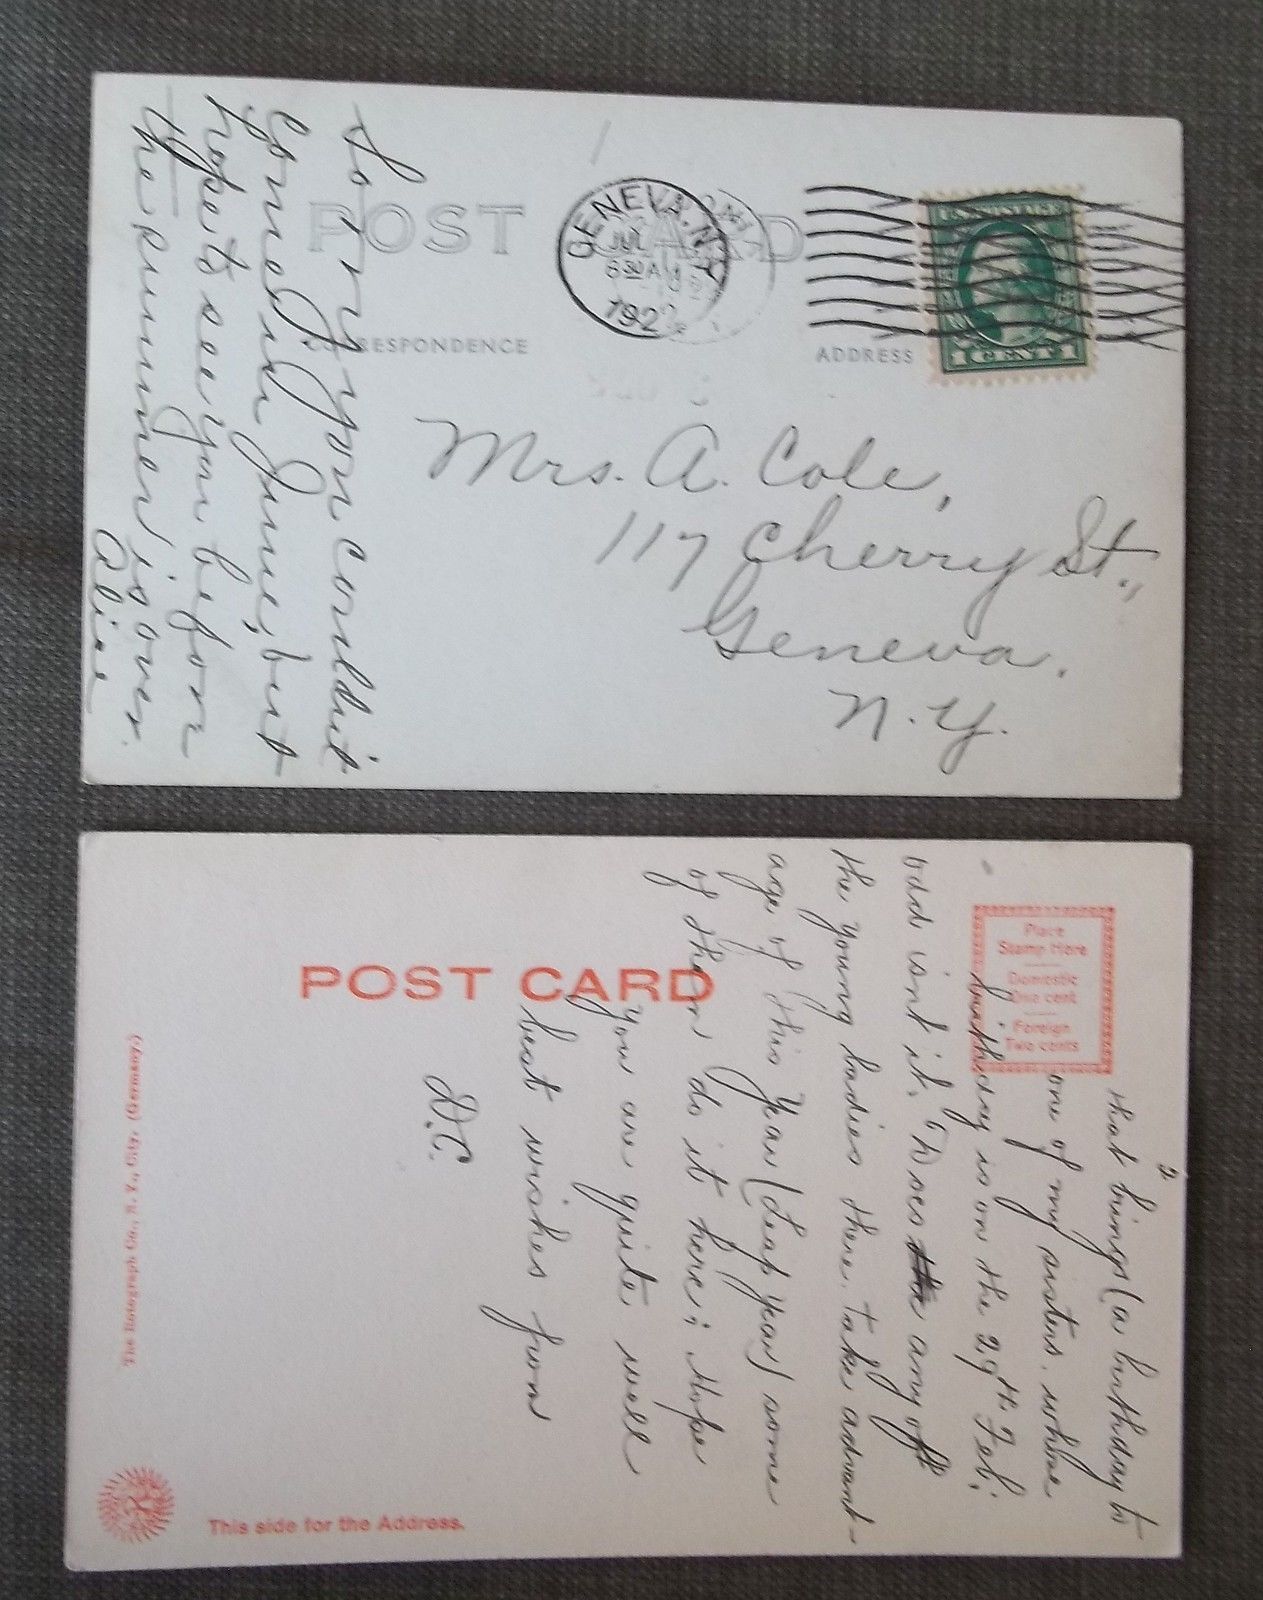 POST CARD
CORRESPONDENCE
ADDRESS
GENEVA, N.Y.
JUL
630 A
1922
U.S. POSTAGE
1 CENT 1
Sorry you couldn't
come in June, but
hope to see you before
the summer is over.
Alice
Mrs. A. Cole,
117 Cherry St.,
Geneva.
N.Y.
POST CARD
Place
Stamp Here
Domestic
One cent
Foreign
Two cents
2
that brings (a birthday to
one of my sisters. whose
birthday is on the 29th Feb;
odd isnt it. Does the any of
the young ladies there, take advant-
age of this Year (Leap year) some
of them do it here; Hope
you are quite well
best wishes from
D.C.
The Rotograph Co., N. Y., City. (Germany.)
This side for the Address.